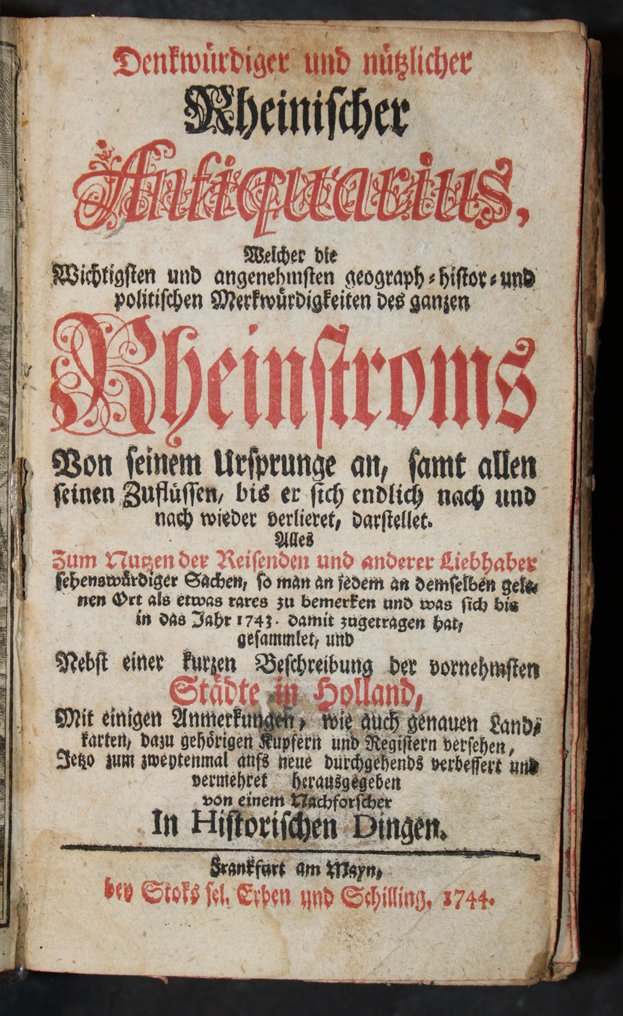 Denkwürdiger und nützlicher
Rheinischer
Antiquarius,
Welcher die
Wichtigsten und angenehmsten geograph-histor-und
politischen Merkwürdigkeiten des ganzen
Rheinstroms
Von seinem Ursprunge an, samt allen
seinen Zuflüssen, bis er sich endlich nach und
nach wieder verlieret, darstellet.
Alles
Zum Nutzen der Reisenden und anderer Liebhaber
sehenswürdiger Sachen, so man an jedem an demselben gele-
nen Ort als etwas rares zu bemerken und was sich bis
in das Jahr 1743. damit zugetragen hat,
gesammlet, und
Nebst einer kurzen Beschreibung der vornehmsten
Städte in Holland,
Mit einigen Anmerkungen, wie auch genauen Land-
karten, dazu gehörigen Kupfern und Registern versehen,
Jetzo zum zweytenmal aufs neue durchgehends verbessert und
vermehret herausgegeben
von einem Nachforscher
In Historischen Dingen.
Frankfurt am Mayn,
bey Stoks sel. Erben und Schilling, 1744.